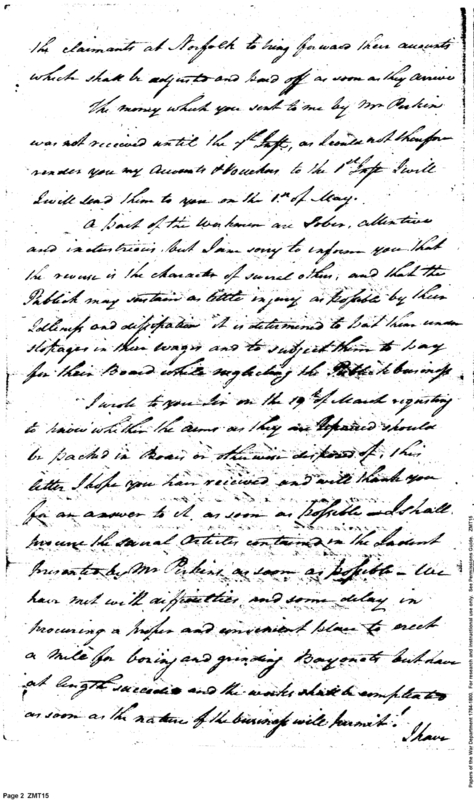 the claimants at Norfolk to bring forward their accounts
which shall be adjusted and paid off as soon as they arrive
The money which you sent to me by Mr Perkin
was not received until the 7th Inst, as I could not therefore
render you my Accounts & Vouchers to the 1st Inst I will
I will send them to you on the 1st of May.
A part of the Workmen are Sober, attentive
and industrious, but I am sorry to inform you that
the reverse is the character of several others, and that the
Publick may sustain as little injury as possible by their
Idleness and dissipation it is determined to put them under
stopages in their wages and to subject them to pay
for their Board while neglecting the Publick business
I wrote to you Sir on the 19th of March requesting
to know whether the arms as they are repaired should
be packed in Boxes or otherwise disposed of, this
letter I hope you have received and will thank you
for an answer to it as soon as possible - I shall
procure the several Articles contained in the Indent
Presented by Mr Perkins as soon as possible - We
have met with difficulties and some delay in
procuring a proper and convenient place to erect
a Mill for boring and grinding Bayonets but have
at length succeeded and the works shall be compleated
as soon as the nature of the business will permit!
I have
Page 2 ZMT15
Papers of the War Department 1784-1800. For research and institutional use only. See Permissions Guide. ZMT15